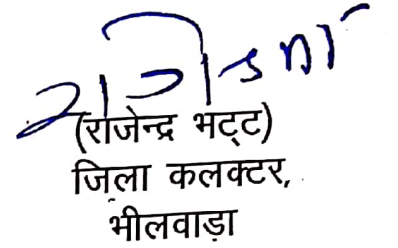 (राजेन्द्र भट्ट)
जिला कलक्टर,
भीलवाड़ा